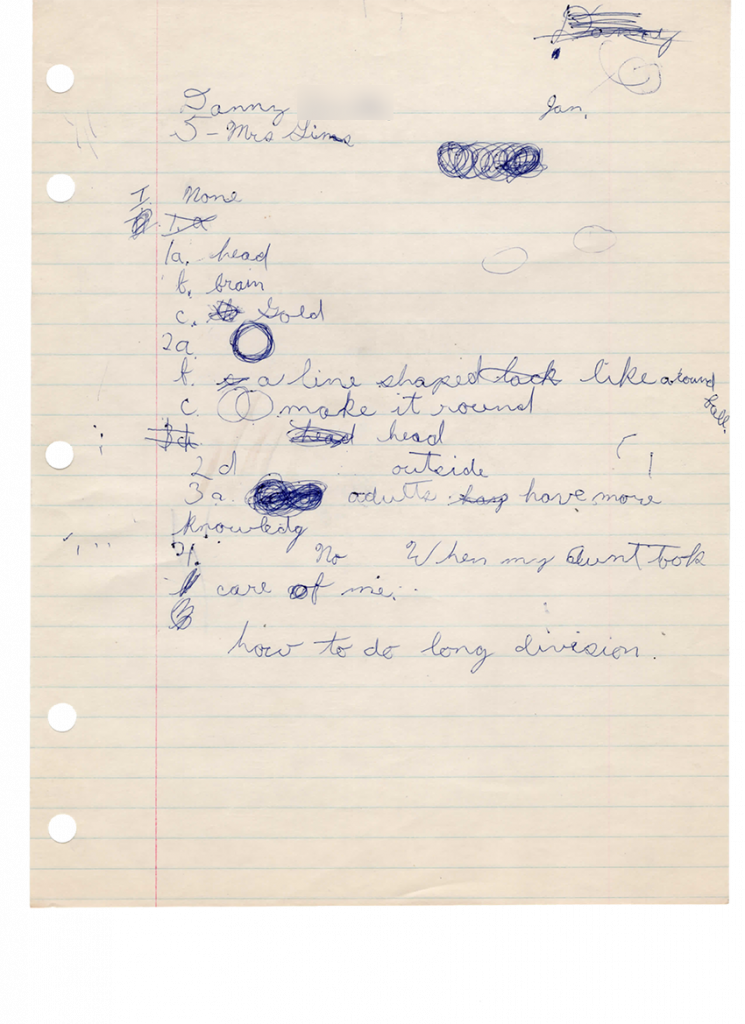 Danny
Jan.
5 - Mrs Sims
I. None
1a. head
b. brain
c. Gold
2a.
b. a line shaped like a round ball.
c. make it round
head head
2 d outside
3 a. adults have more
knowledg
4. No When my aunt took
care of me.
how to do long division.